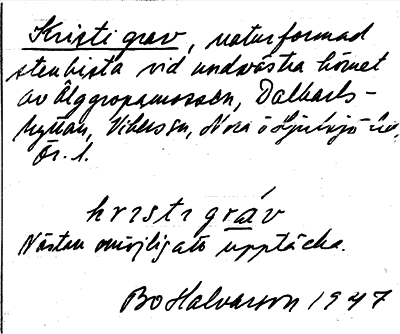 Kristi grav, naturformad
stenkista vid undvästra hörnet
av Älggropamossen, Dalkarls-
hyttan, Vikersón, Nora ö Hjulsjö hd,
Ör. l.
krɪstɪ gráv
Nästan omöjligatt upptäcka.
Bo Halvarson 1947